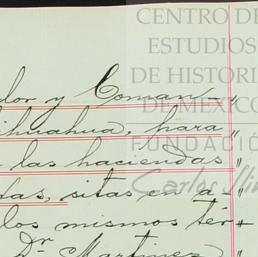 CENTRO DE
ESTUDIOS
DE HISTORI
DE MÉXICO
FUNDACIÓN
Carlos Slim
dor y Coman-
ihuahua, hara "
las haciendas "
das, sitas en a "
los mismos tér-
Dr. Martinez "